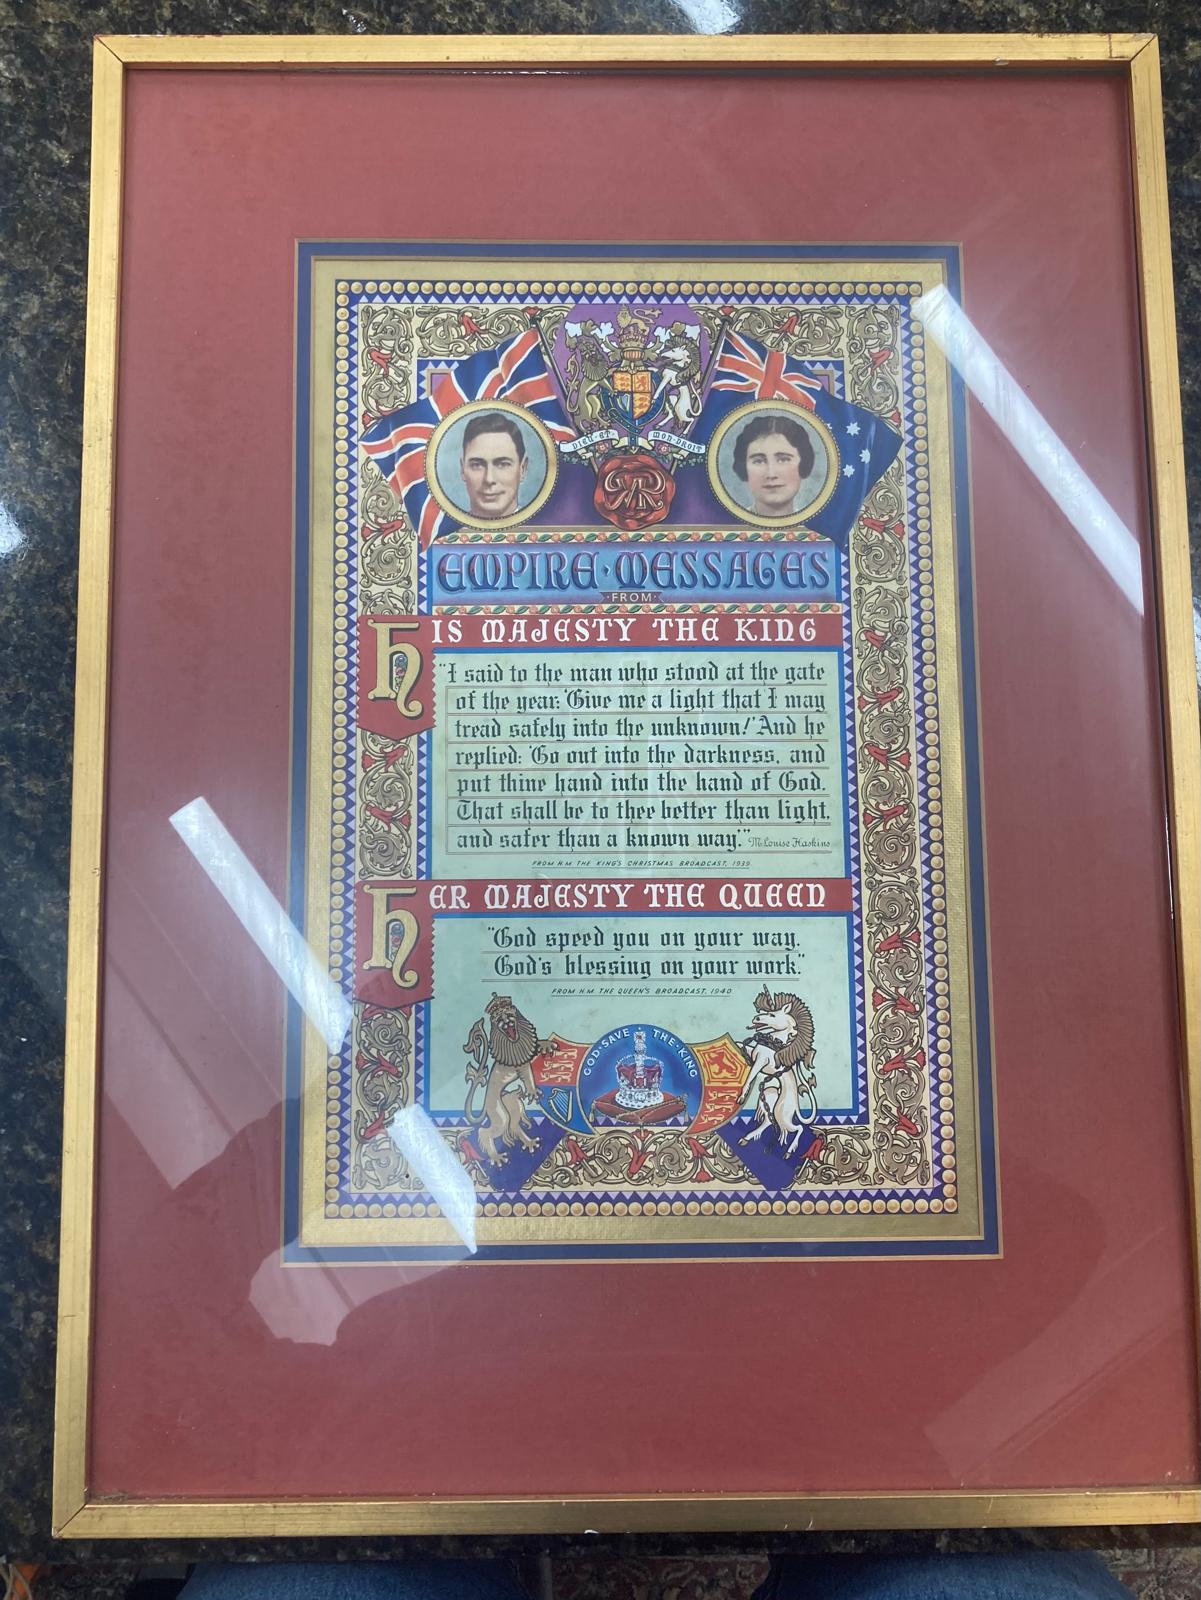 DIEU·ET· MON·DROIT
GR
EMPIRE·MESSAGES
·FROM·
HIS MAJESTY THE KING
"I said to the man who stood at the gate
of the year: 'Give me a light that I may
tread safely into the unknown!' And he
replied: 'Go out into the darkness, and
put thine hand into the hand of God.
That shall be to thee better than light,
and safer than a known way.'" M. Louise Haskins
FROM H.M. THE KING'S CHRISTMAS BROADCAST, 1939.
HER MAJESTY THE QUEEN
"God speed you on your way.
God's blessing on your work."
FROM H.M. THE QUEEN'S BROADCAST, 1940
GOD·SAVE·THE·KING